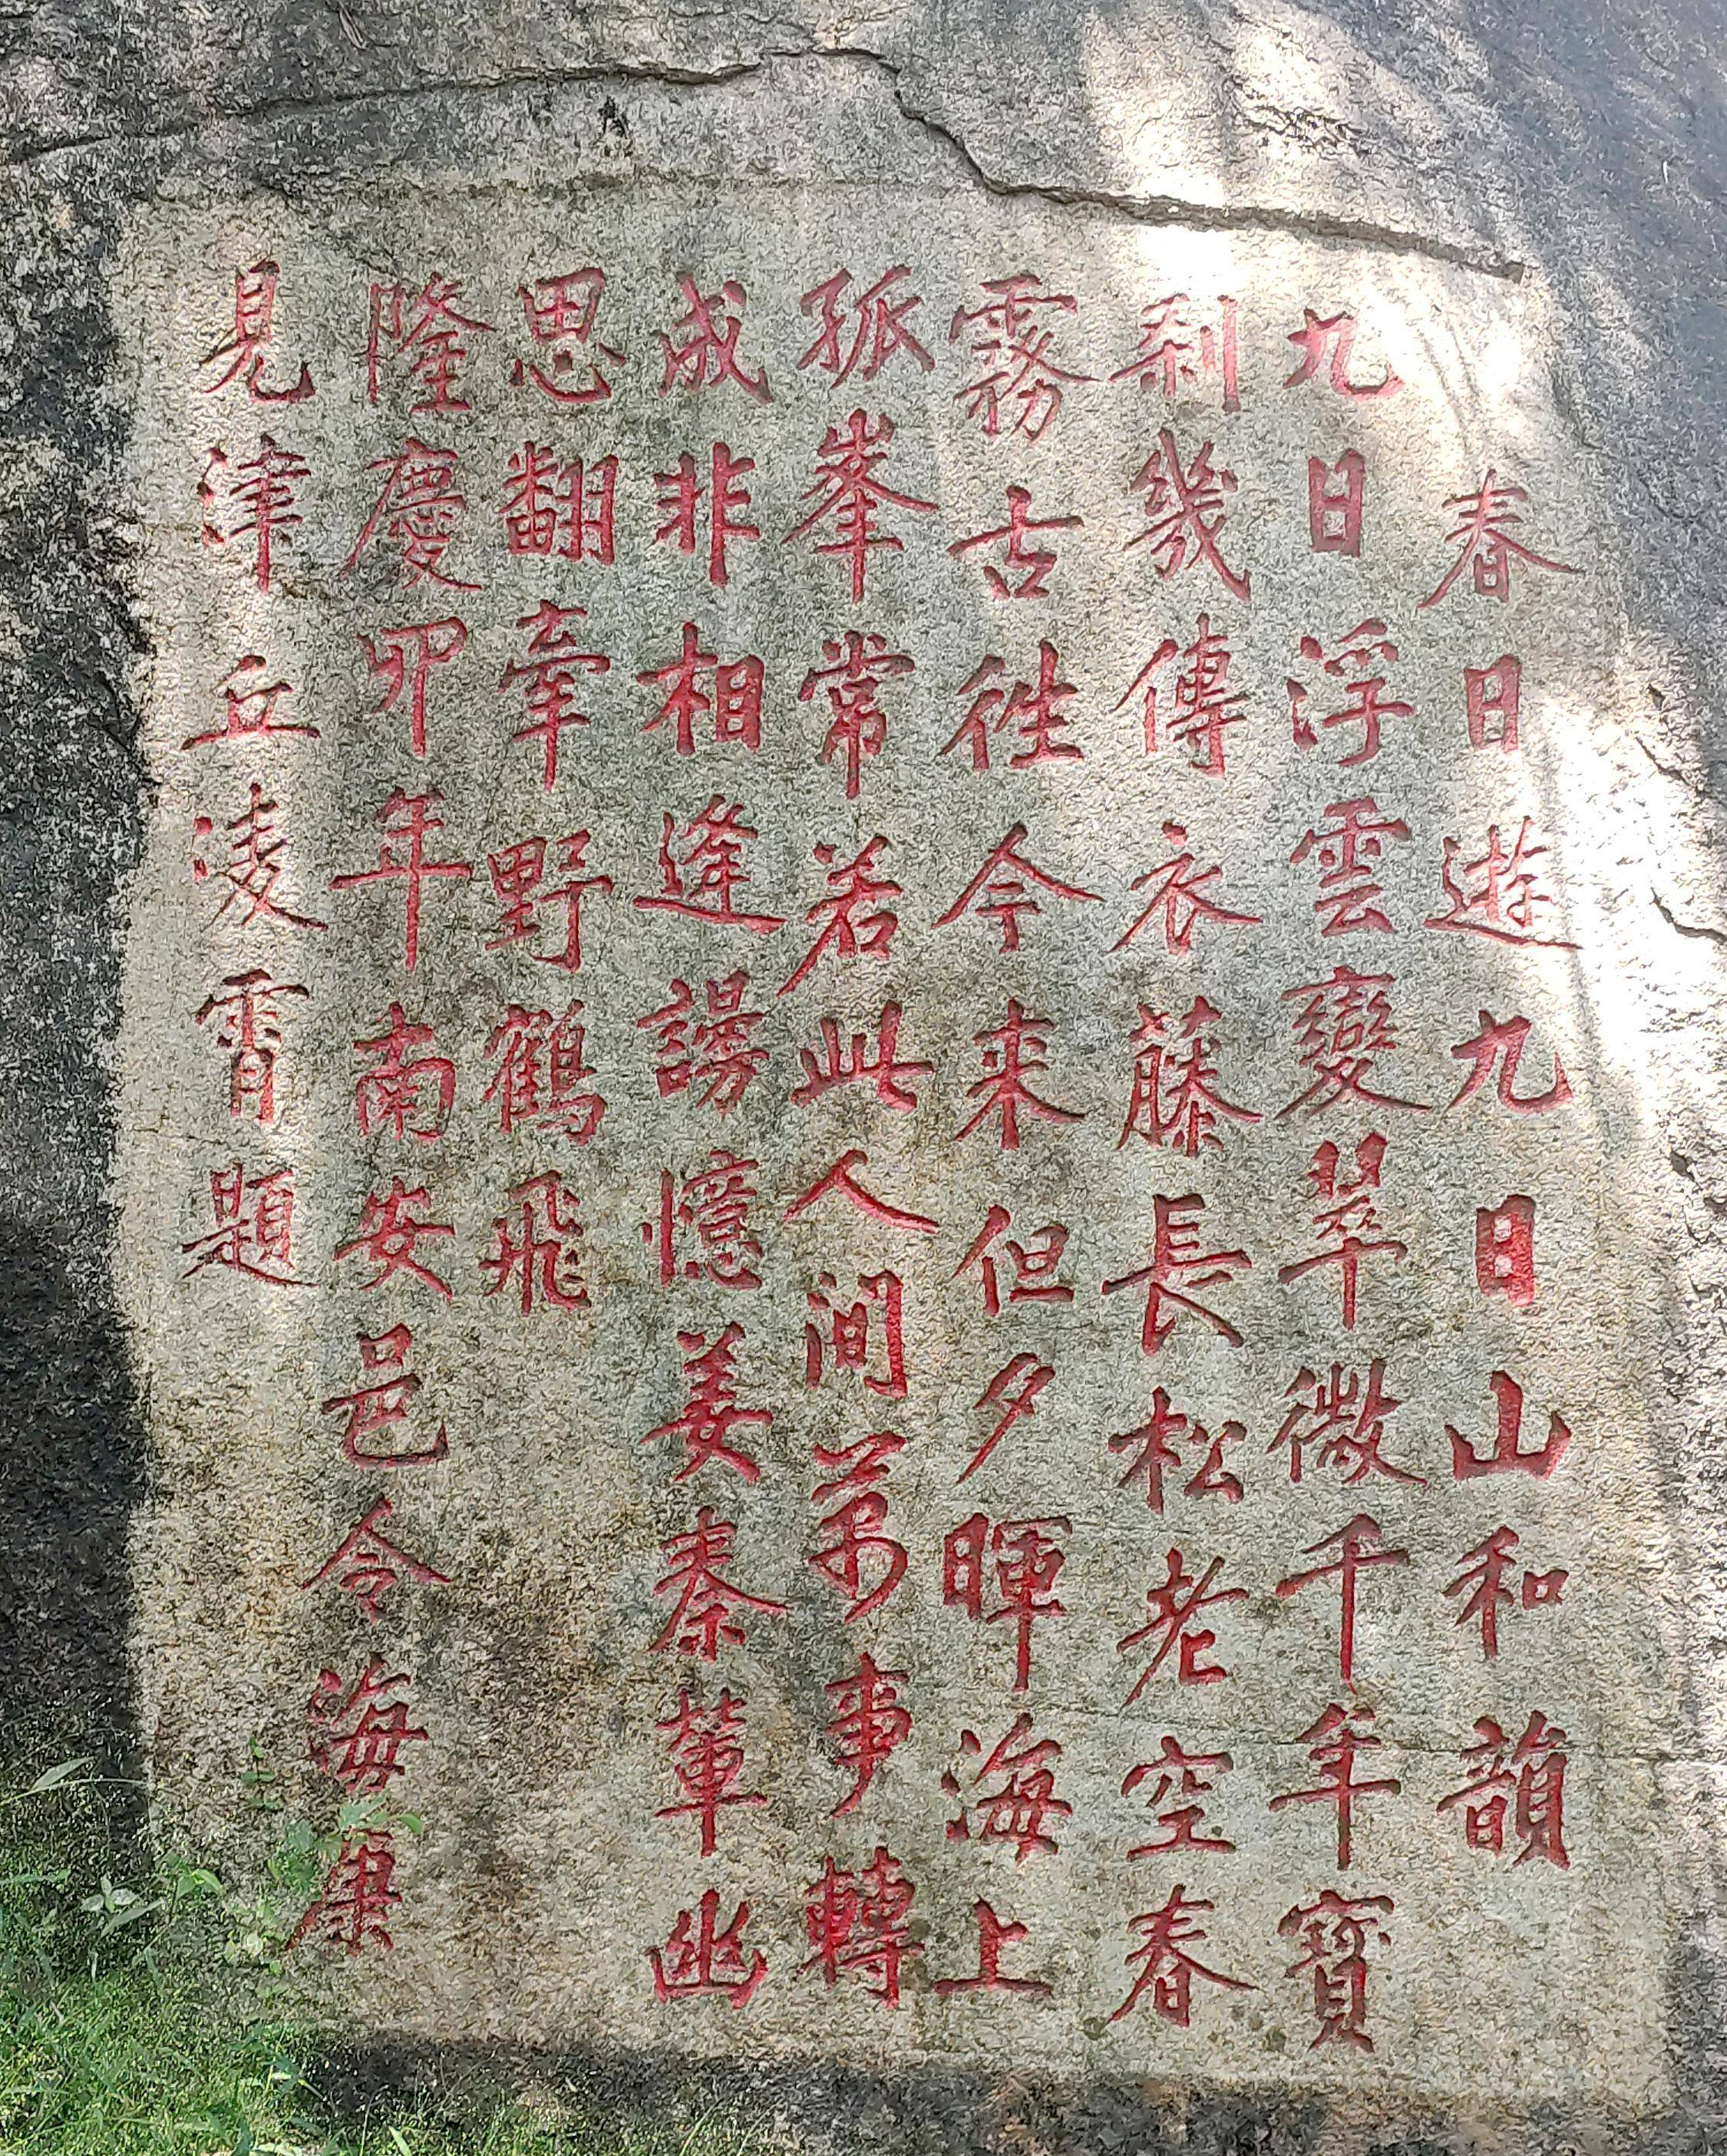 春日遊九日山和韻
九日浮雲變翠微千年寶
刹幾傳衣藤長松老空春
霧古徃今来但夕暉海上
孤峯常若此人间万事轉
成非相逢謾憶姜秦輩幽
思翻牽野鶴飛
隆慶卯年南安邑令海康
見津丘凌霄題